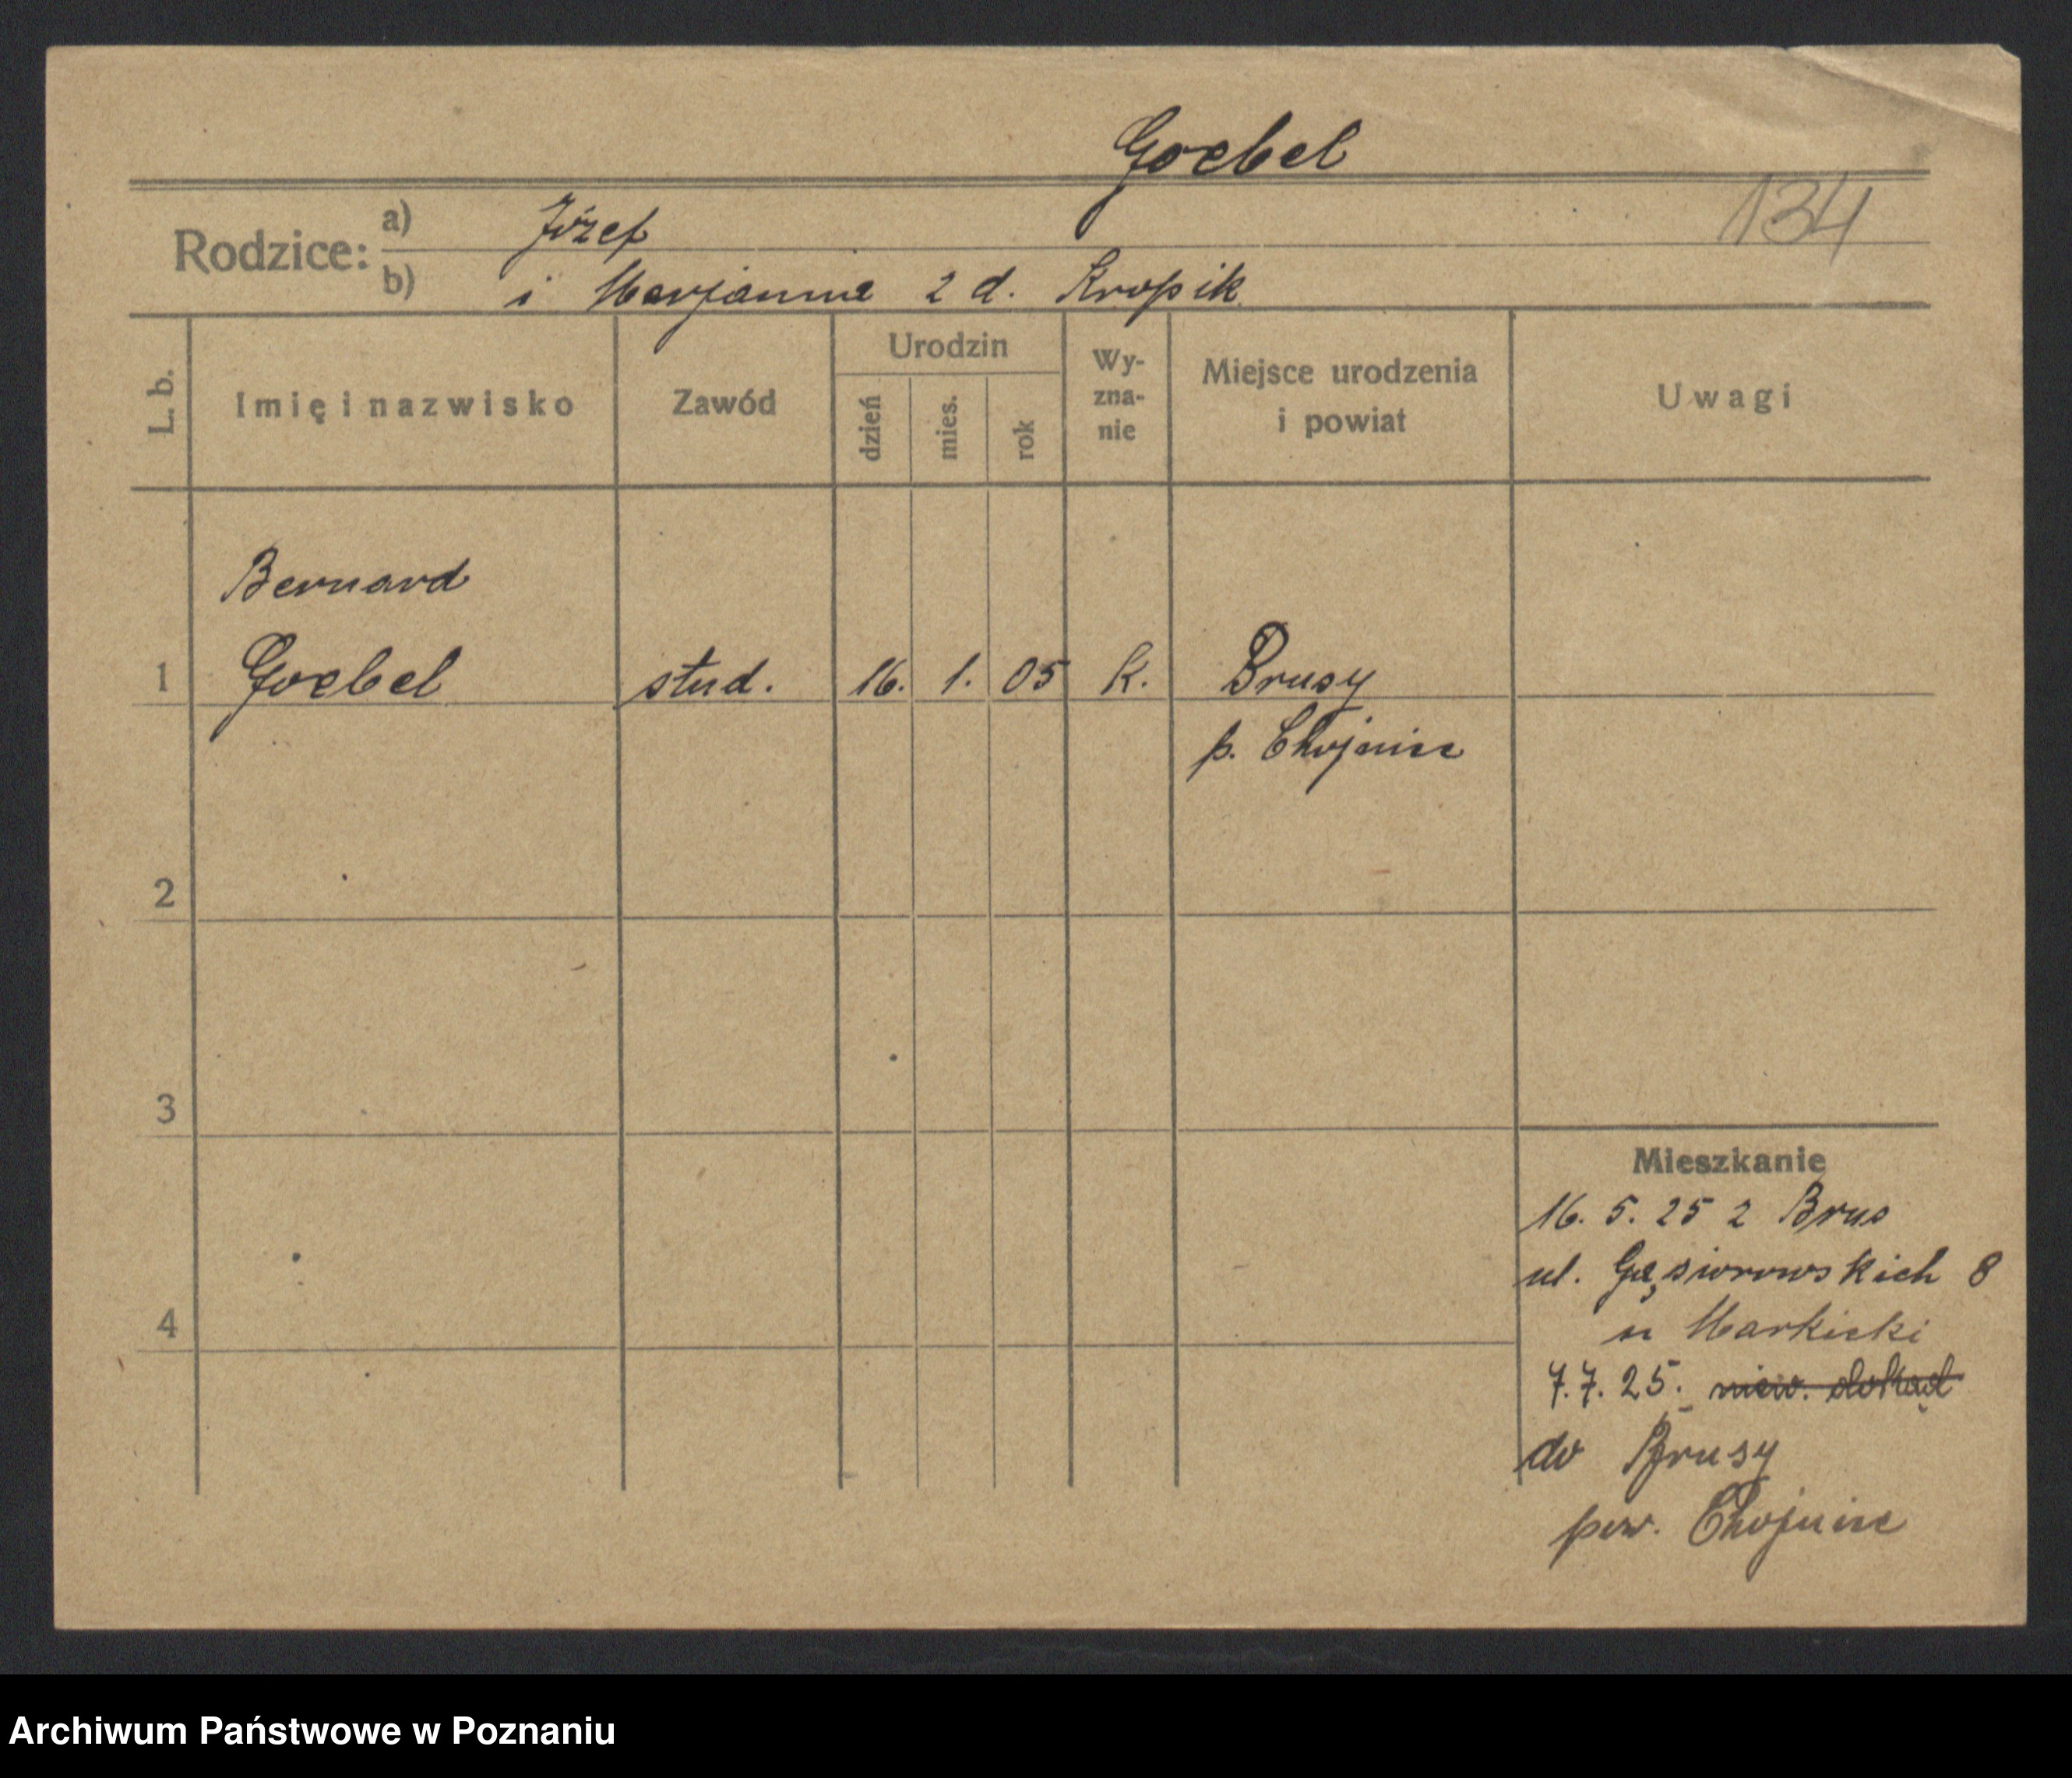 Goebel
134
Rodzice: a) Józef
b) i Marjanna z d. Kropik
L. b.
Imię i nazwisko
Zawód
Urodzin
dzień
mies.
rok
Wy-
zna-
nie
Miejsce urodzenia
i powiat
Uwagi
Bernard
1 Goebel stud. 16. 1. 05 k. Brusy
p. Chojnice
2
3
4
Mieszkanie
16. 5. 25 z Brus
ul. Gąsiorowskich 8
u Markicki
7.7.25. niew. dokąd
do Brusy
pow. Chojnice
Archiwum Państwowe w Poznaniu